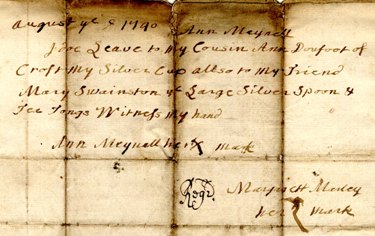 August ye 8 1740 Ann Meynell
I doe Leave to my Cousin Ann Doufoot of
Croft My Silver Cup allso to my Friend
Mary Swainston ye Large Silver Spoon &
Tee Tongs Witness my hand
Ann Meynell her X mark
Margrett Morley
her X mark